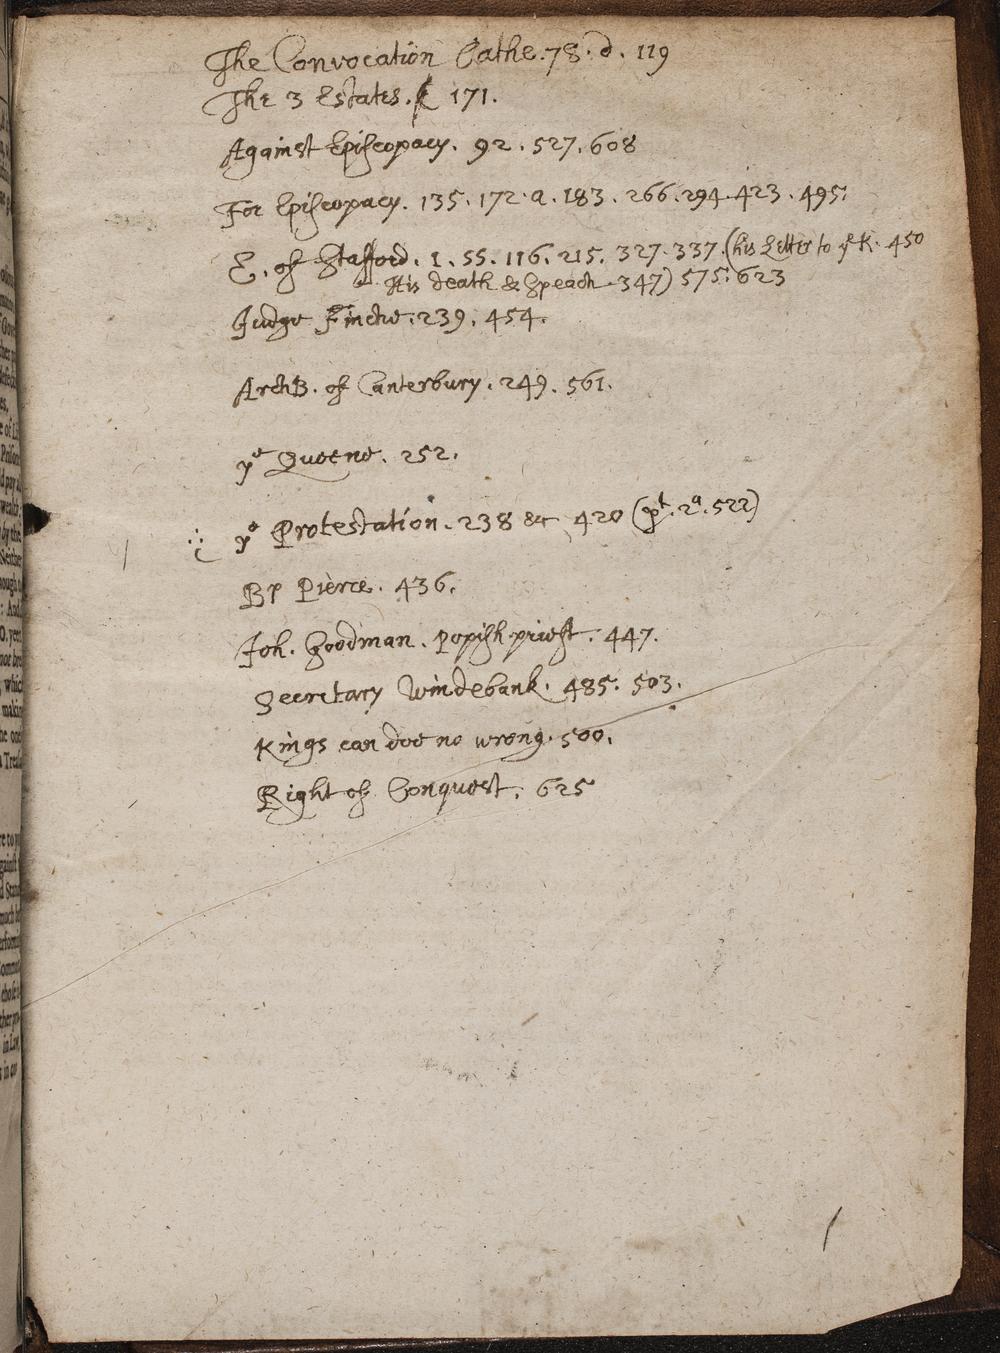 The Convocation Oathe. 78. d. 119
The 3 Estates. 171.
Against Episcopacy. 92. 527. 608
For Episcopacy. 135. 172. a. 183. 266. 294. 423. 495.
E. of Stafford. 1. 55. 116. 215. 327. 337. (his Letter to yᵉ K. 450
His death & Speach 347) 575. 623
Judge Finche. 239. 454.
ArchB. of Canterbury. 249. 561.
yᵉ Queene. 252.
yᵉ Protestation. 238 &c 420 (pᵗ. 2ᵃ. 522)
Bp Pierce. 436.
Joh. Goodman. Popish priest. 447.
Secretary Windebank. 485. 503.
Kings can doe no wrong. 500.
Right of Conquest. 625